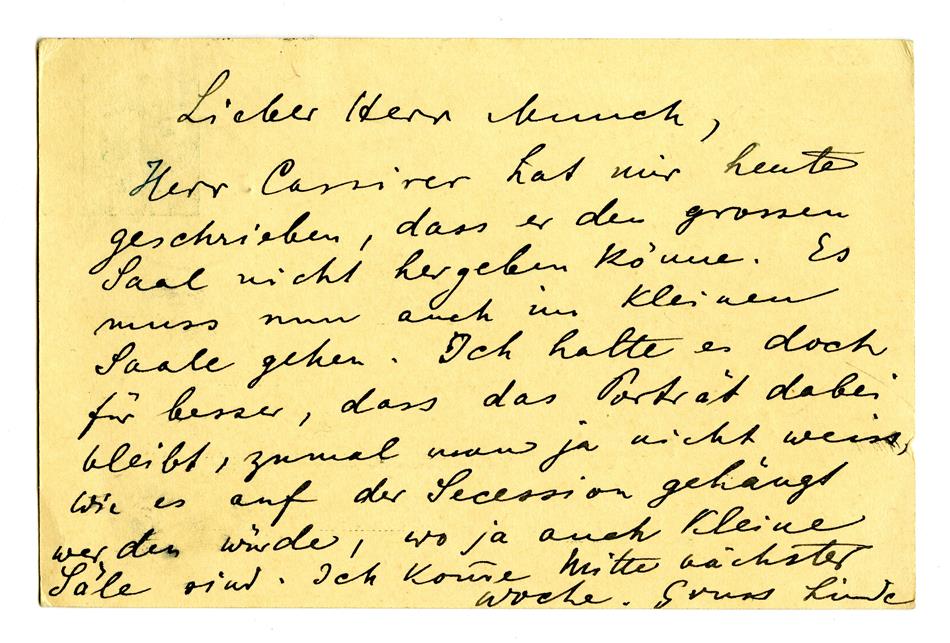 Lieber Herr Munch,
Herr Cassirer hat mir heute
geschrieben, dass er den grossen
Saal nicht hergeben könne. Es
muss nun auch im kleinen
Saale gehen. Ich halte es doch
für besser, dass das Porträt dabei
bleibt, zumal man ja nicht weiss,
wie es auf der Secession gehängt
werden würde, wo ja auch kleine
Säle sind. Ich kom̄e Mitte nächster
Woche. Gruss Linde